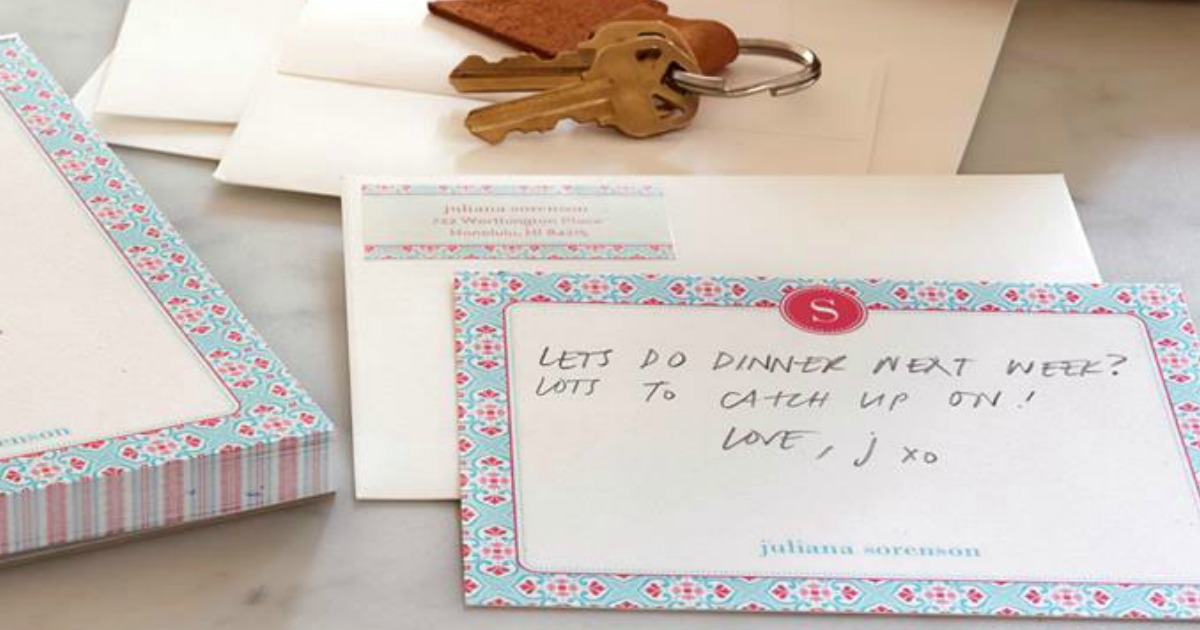 juliana sorenson
722 Worthington Place
Honolulu, HI 84215
S
LETS DO DINNER NEXT WEEK?
LOTS TO CATCH UP ON!
LOVE, j xo
juliana sorenson
enson